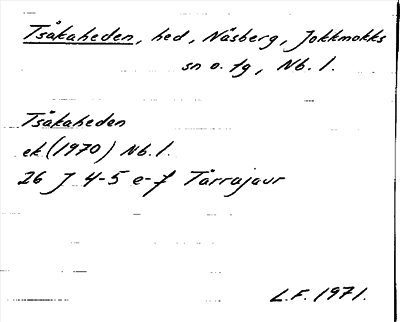 Tsåkaheden, hed, Näsberg, Jokkmokks
sn o. tg, Nb. l.
Tsåkaheden
ek (1970) Nb. l.
26 J 4-5 e-f Tårrajaur
L.F. 1971.